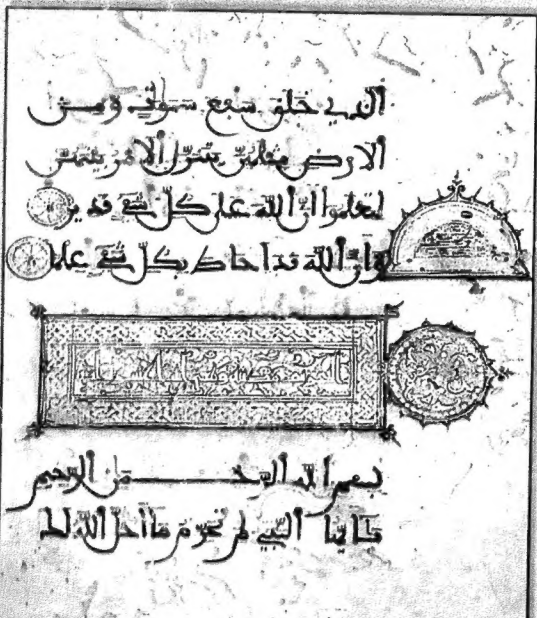 الذي خلق سبع سموات ومن
الارض مثلهن يتنزل الامر بينهن
لتعلموا ان الله على كل شي قدير
وان الله قد احاط بكل شي علما
بسم الله الرحمن الرحيم
يايها النبي لم تحرم ما احل الله لك